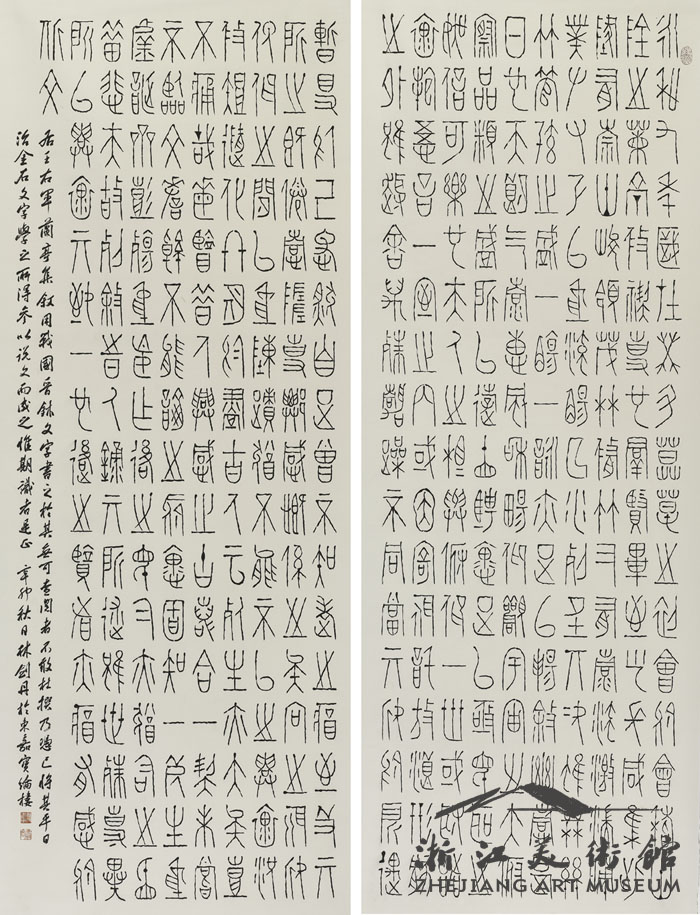 永和九年歲在癸丑暮春之初會於會稽山
陰之蘭亭脩禊事也羣賢畢至少長咸集此
地有崇山峻領茂林脩竹又有清流激湍暎
帶左右引以為流觴曲水列坐其次雖無絲
竹管弦之盛一觴一詠亦足以暢敘幽情是
日也天朗氣清惠風和暢仰觀宇宙之大俯
察品類之盛所以遊目騁懷足以極視聽之
娛信可樂也夫人之相與俯仰一世或取諸
懷抱悟言一室之內或因寄所託放浪形骸
之外雖趣舍萬殊靜躁不同當其欣於所遇
暫得於己快然自足曾不知老之將至及其
所之既倦情隨事遷感慨係之矣向之所欣
俛仰之間以為陳跡猶不能不以之興懷況
脩短隨化終期於盡古人云死生亦大矣豈
不痛哉每覽昔人興感之由若合一契未嘗
不臨文嗟悼不能喻之於懷固知一死生為
虛誕齊彭殤為妄作後之視今亦猶今之視
昔悲夫故列敘時人錄其所述雖世殊事異
所以興懷其致一也後之覽者亦將有感於
斯文
右王右軍蘭亭集敘用戰國晉系文字書之於其無可查閱者不敢杜撰乃憑己將其平日
治金石文字學之所得參以說文而成之惟期識者是正 辛卯秋日林劍丹於東嘉寶綸樓
浙江美術館
ZHEJIANG ART MUSEUM